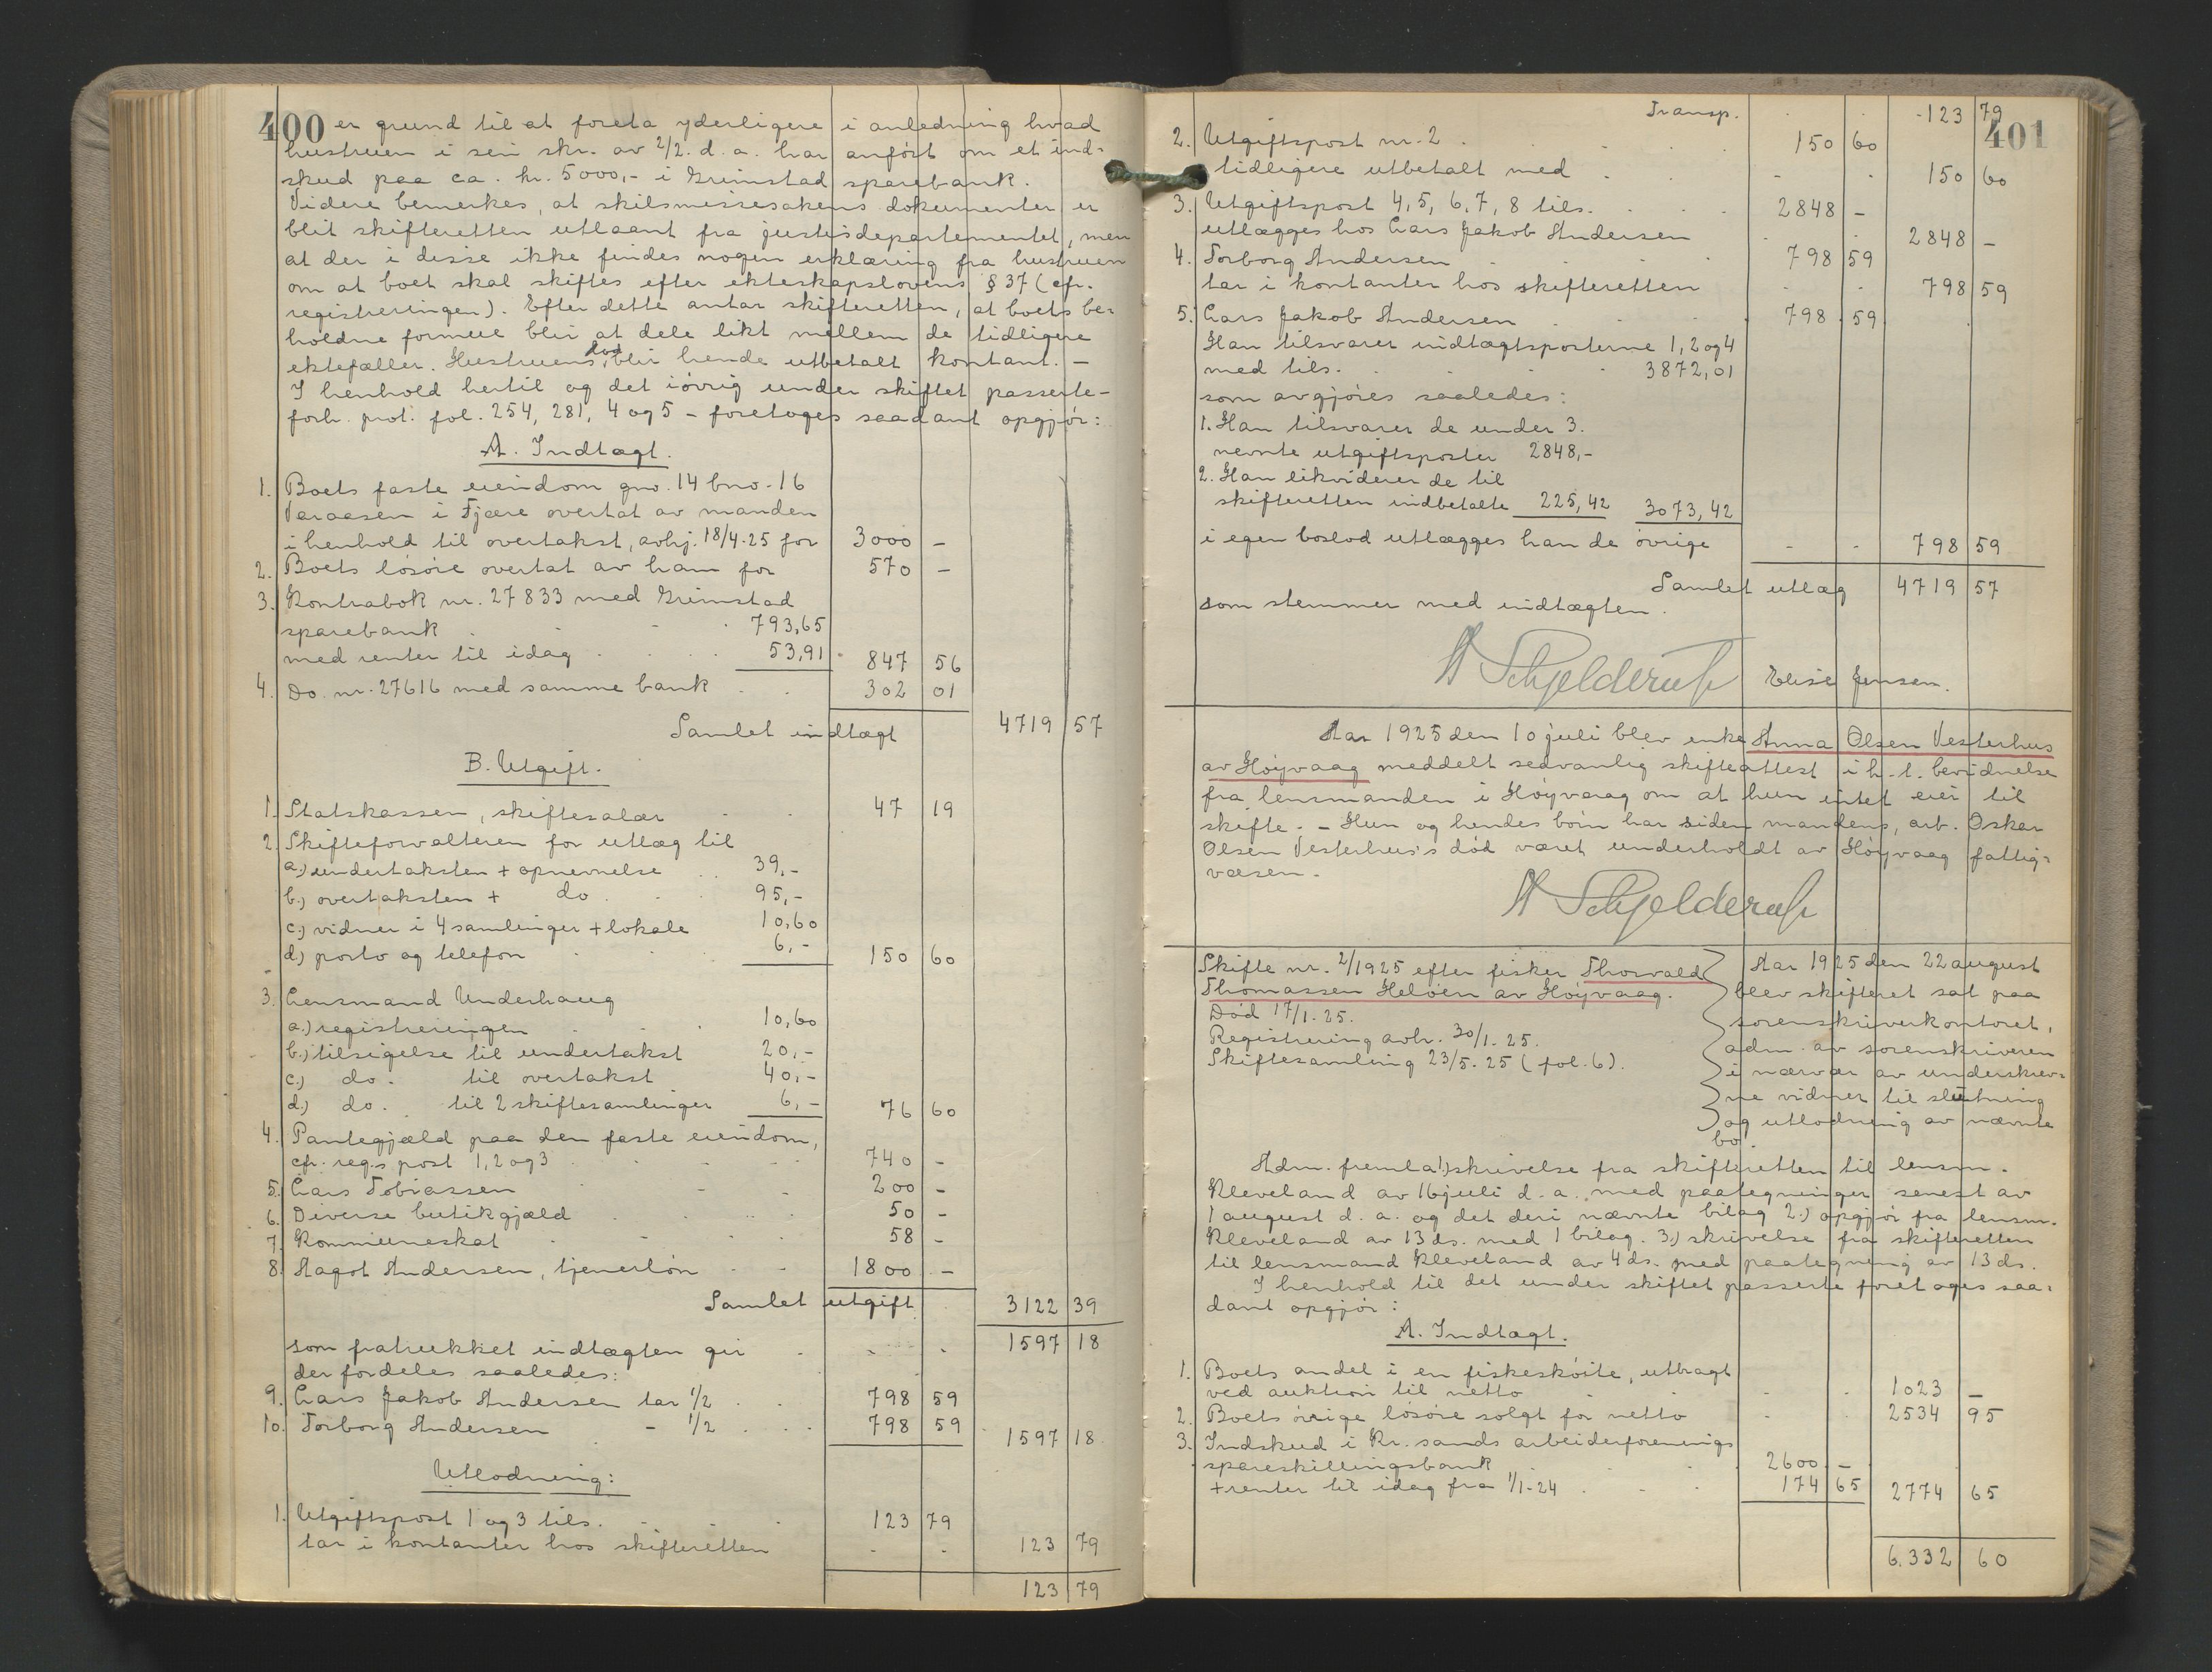 400
er grund til at foreta yderligere i anledning hvad
hustruen i sin skr. av 2/2. d. a. har anført om et ind-
skud paa ca. kr. 5000,- i Grimstad sparebank.
Videre bemerkes, at skilsmissesakens dokumenter er
blit skifteretten utlaant fra justisdepartementet, men
at der i disse ikke findes nogen erklæring fra hustruen
om at boet skal skiftes efter ekteskapslovens § 37 (cfr.
registreringen). Efter dette antar skifteretten, at boets be-
holdne formue blir at dele likt mellem de tidligere
ektefæller. Hustruens lod blir hende utbetalt kontant. -
I henhold hertil og det iøvrig under skiftet passerte -
forh. prot. fol. 254, 281, 4 og 5 - foretoges saadant opgjør:
A. Indtægt.
1. Boets faste eiendom gno. 14 bno. 16
Varaasen i Fjære overtat av manden
i henhold til overtakst, avhj. 18/4-25 for 3000 -
2. Boets løsøre overtat av ham for 570 -
3. Kontrabok nr. 27833 med Grimstad
sparebank 793,65
med renter til idag 53,91 847 56
4. Do. nr. 27616 med samme bank 302 01
Samlet indtægt 4719 57
B. Utgift.
1. Statskassen, skiftesalær 47 19
2. Skifteforvalteren for utlæg til
a.) undertaksten + opnevnelse 39,-
b.) overtaksten + do. 95,-
c.) vidner i 4 samlinger + lokale 10,60
d.) porto og telefon 6,- 150 60
3. Lensmand Underhaug
a.) registreringen 10,60
b.) tilsigelse til undertakst 20,-
c.) do. til overtakst 40,-
d.) do. til 2 skiftesamlinger 6,- 76 60
4. Pantegjæld paa den faste eiendom,
cfr. reg.s post 1, 2 og 3 740 -
5. Lars Tobiassen 200 -
6. Diverse butikgjæld 50 -
7. Kommuneskat 58 -
8. Aagot Andersen, tjenerløn 1800 -
Samlet utgift 3122 39
som fratrukket indtægten gir 1597 18
der fordeles saaledes:
9. Lars Jakob Andersen tar 1/2 798 59
10. Torborg Andersen - 1/2 798 59 1597 18
Utlodning:
1. Utgiftspost 1 og 3 tils. 123 79
tar i kontanter hos skifteretten 123 79
123 79
401
Transp. 123 79
2. Utgiftspost nr. 2 150 60
tidligere utbetalt med 150 60
3. Utgiftspost 4, 5, 6, 7, 8 tils. 2848 -
utlægges hos Lars Jakob Andersen 2848 -
4. Torborg Andersen 798 59
tar i kontanter hos skifteretten 798 59
5. Lars Jakob Andersen 798 59
Han tilsvarer indtægtsposterne 1, 2 og 4
med tils. 3872,01
som avgjøres saaledes:
1. Han tilsvarer de under 3.
nevnte utgiftsposter 2848,-
2. Han likviderer de til
skifteretten indbetalte 225,42 3073,42
i egen boslod utlægges han de øvrige 798 59
Samlet utlæg 4719 57
som stemmer med indtægten.
A Schjelderup Elise Jensen.
Aar 1925 den 10 juli blev enke Anna Olsen Vesterhus
av Høyvaag meddelt sedvanlig skifteattest i h. t. bevidnelse
fra lensmanden i Høyvaag om at hun intet eier til
skifte. - Hun og hendes børn har siden mandens, arb. Oskar
Olsen Vesterhus's død været underholdt av Høyvaag fattig-
væsen.
A Schjelderup
Skifte nr. 2/1925 efter fisker Thorvald
Thomassen Heløen av Høyvaag.
Død 17/1-25.
Registrering avh. 30/1-25.
Skiftesamling 23/5-25 (fol. 6).
Aar 1925 den 22 august
blev skifteret sat paa
sorenskriverkontoret,
adm. av sorenskriveren
i nærvær av underskrev-
ne vidner til slutning
og utlodning av nævnte
bo.
Adm. fremla 1.) skrivelse fra skifteretten til lensm.
Kleveland av 16 juli d. a. med paategninger senest av
1 august d. a. og det deri nævnte bilag 2.) opgjør fra lensm.
Kleveland av 13 ds. med 1 bilag. 3.) skrivelse fra skifteretten
til lensmand Kleveland av 4 ds. med paategning av 13 ds.
I henhold til det under skiftet passerte foretoges saa-
dant opgjør:
A. Indtægt.
1. Boets andel i en fiskeskøite, utbragt
ved auktion til netto 1023 -
2. Boets øvrige løsøre solgt for netto 2534 95
3. Indskud i Kr.sands arbeiderforenings
spareskillingsbank 2600 -
+ renter til idag fra 1/1-24 174 65 2774 65
6.332 60